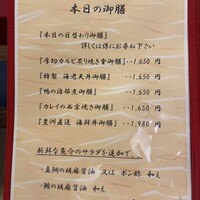 本日の御膳
『本日の日替わり御膳』
詳しくは係にお尋ね下さい
『厚切カルビ炙り焼き重御膳』‥1,650 円
『特製 海老天丼御膳』‥1,650 円
『鴨の治部煮御膳』‥1,650 円
『カレイの西京焼き御膳』‥1,650 円
『豊洲直送 海鮮丼御膳』‥1,980 円
新鮮な魚介のサラダを追加で、
・真鯛の胡麻醤油 又は ポン酢 和え
・鰤の胡麻醤油 和え